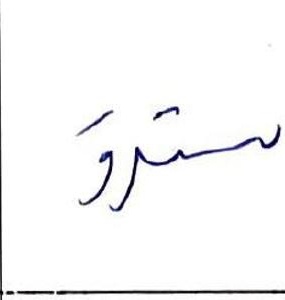 ستروَ